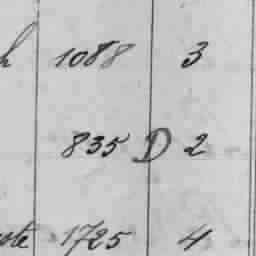 h 1088 3
835 D 2
ote 1725 4